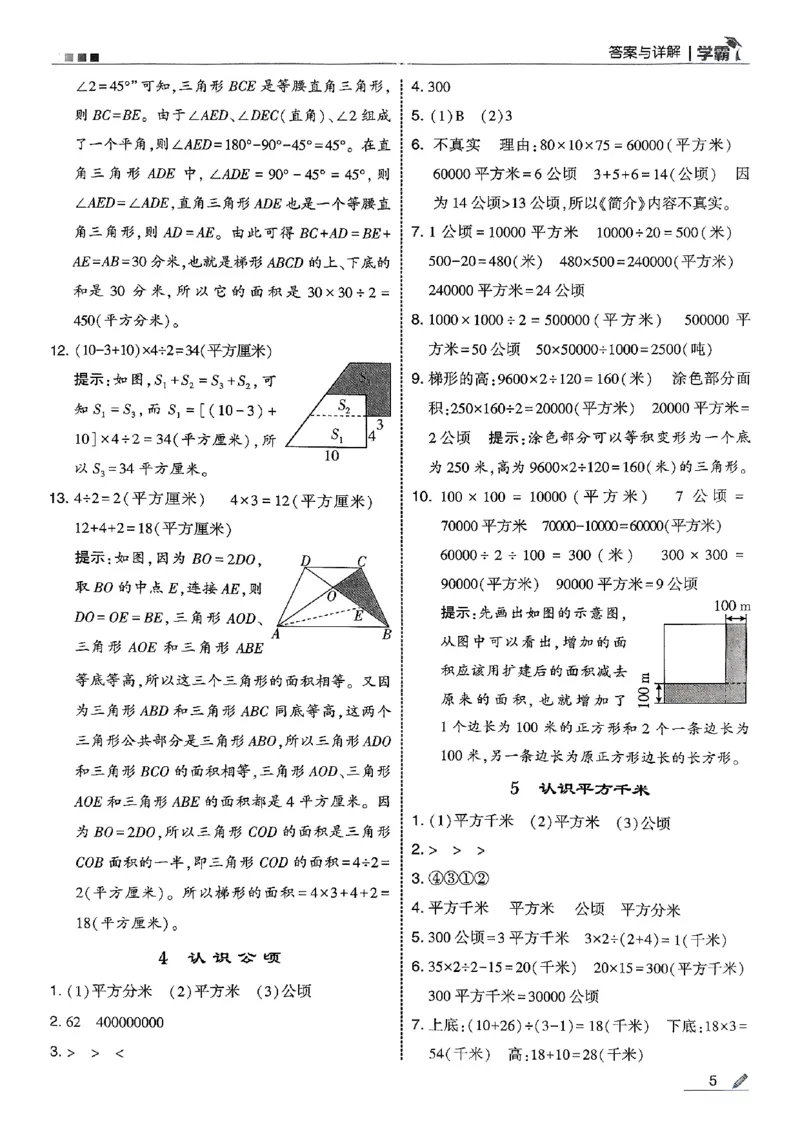 答案与详解 学霸
∠2=45°”可知,三角形 BCE 是等腰直角三角形,
则 BC=BE。由于∠AED、∠DEC(直角)、∠2 组成
了一个平角,则∠AED=180°-90°-45°=45°。在直
角三角形 ADE 中, ∠ADE = 90° - 45° = 45°, 则
∠AED=∠ADE,直角三角形 ADE 也是一个等腰直
角三角形,则 AD=AE。由此可得 BC+AD=BE+
AE=AB=30 分米,也就是梯形 ABCD 的上、下底的
和是 30 分米,所以它的面积是 30×30÷2=
450(平方分米)。
12. (10-3+10)×4÷2=34(平方厘米)
提示:如图,S₁+S₂=S₃+S₂,可
知 S₁=S₃,而 S₁=[(10-3)+
10]×4÷2=34(平方厘米),所
以 S₃=34 平方厘米。
S₃
S₂
S₁
3
4
10
13. 4÷2=2(平方厘米) 4×3=12(平方厘米)
12+4+2=18(平方厘米)
提示:如图,因为 BO=2DO,
取 BO 的中点 E,连接 AE,则
DO=OE=BE,三角形 AOD、
三角形 AOE 和三角形 ABE
D C
O
E
A B
等底等高,所以这三个三角形的面积相等。又因
为三角形 ABD 和三角形 ABC 同底等高,这两个
三角形公共部分是三角形 ABO,所以三角形 ADO
和三角形 BCO 的面积相等,三角形 AOD、三角形
AOE 和三角形 ABE 的面积都是 4 平方厘米。因
为 BO=2DO,所以三角形 COD 的面积是三角形
COB 面积的一半,即三角形 COD 的面积=4÷2=
2(平方厘米)。所以梯形的面积=4×3+4+2=
18(平方厘米)。
4 认识公顷
1. (1)平方分米 (2)平方米 (3)公顷
2. 62 400000000
3. > > <
4. 300
5. (1)B (2)3
6. 不真实 理由:80×10×75=60000(平方米)
60000 平方米=6 公顷 3+5+6=14(公顷) 因
为 14 公顷>13 公顷,所以《简介》内容不真实。
7. 1 公顷=10000 平方米 10000÷20=500(米)
500-20=480(米) 480×500=240000(平方米)
240000 平方米=24 公顷
8. 1000×1000÷2=500000(平方米) 500000 平
方米=50 公顷 50×50000÷1000=2500(吨)
9. 梯形的高:9600×2÷120=160(米) 涂色部分面
积:250×160÷2=20000(平方米) 20000 平方米=
2 公顷 提示:涂色部分可以等积变形为一个底
为 250 米,高为 9600×2÷120=160(米)的三角形。
10. 100 × 100 = 10000 (平方米) 7 公顷 =
70000 平方米 70000-10000=60000(平方米)
60000÷2÷100=300(米) 300×300=
90000(平方米) 90000 平方米=9 公顷
提示:先画出如图的示意图,
从图中可以看出,增加的面
积应该用扩建后的面积减去
原来的面积,也就增加了
100 m
100 m
1 个边长为 100 米的正方形和 2 个一条边长为
100 米,另一条边长为原正方形边长的长方形。
5 认识平方千米
1. (1)平方千米 (2)平方米 (3)公顷
2. > > >
3. ④③①②
4. 平方千米 平方米 公顷 平方分米
5. 300 公顷=3 平方千米 3×2÷(2+4)=1(千米)
6. 35×2÷2-15=20(千米) 20×15=300(平方千米)
300 平方千米=30000 公顷
7. 上底:(10+26)÷(3-1)=18(千米) 下底:18×3=
54(千米) 高:18+10=28(千米)
5